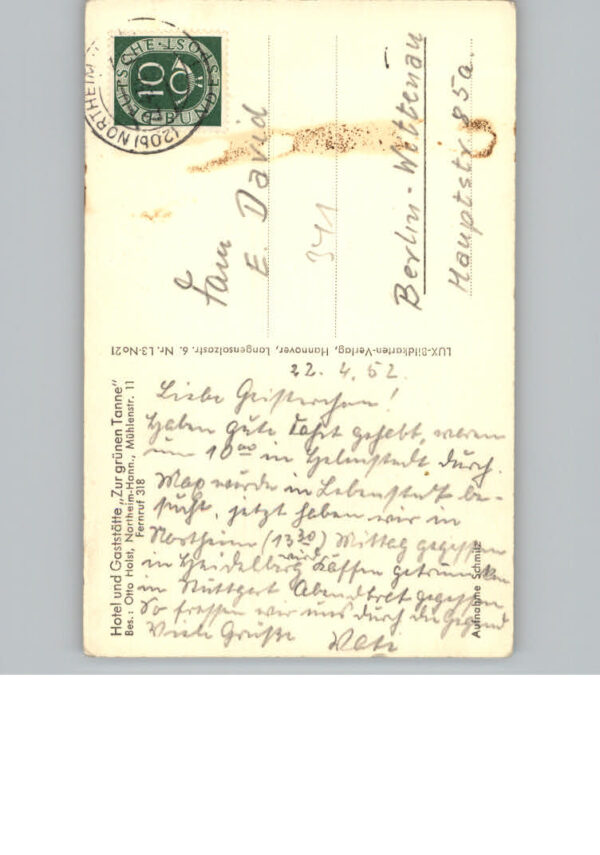 Hotel und Gaststätte „Zur grünen Tanne"
Bes.: Otto Holst, Northeim-Hann., Mühlenstr. 11
Fernruf 318
22. 4. 52.
Liebe
haben gute Fahrt gehabt, waren
um 10⁰⁰ in Helmstedt durch.
Max wurde in Lebenstedt be-
sucht, jetzt haben wir in
Northeim (13³⁰) Mittag gegessen
in Heidelberg wird Kaffee getrunken
in Stuttgart Abendbrot gegessen
So fressen wir uns durch die Gegend
Viele Grüße
Aufnahme Schmitz
LUX-Bildkarten-Verlag, Hannover, Langensalzastr. 6. Nr. L3-No21
DEUTSCHE BUNDESPOST
10
(20b) NORTHEIM
Fam
E. David
341
Berlin-Wittenau
Hauptstr 85a.